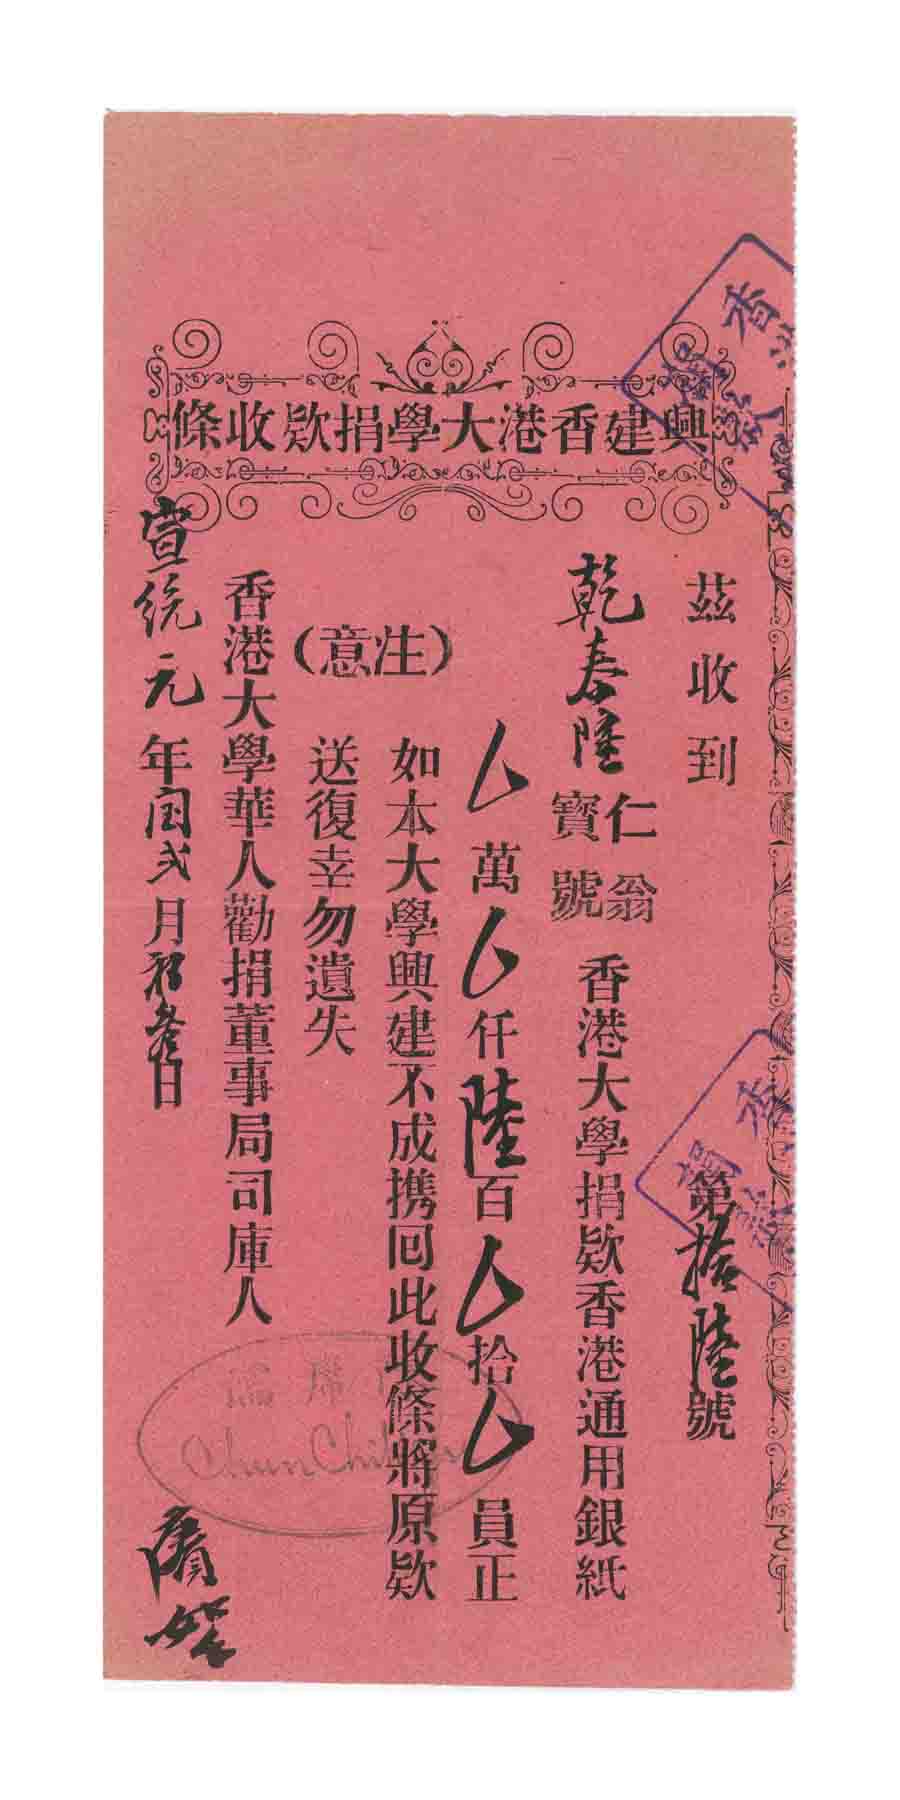 興建香港大學捐欵收條
茲收到
第拾陸號
乾泰隆
仁翁
寶號
香港大學捐欵香港通用銀紙
萬
仟陸百
拾
員正
(注意)
如本大學興建不成携囘此收條將原欵
送復幸勿遺失
香港大學華人勸捐董事局司庫人
宣統元年閏弍月初叁日
Chun Chi